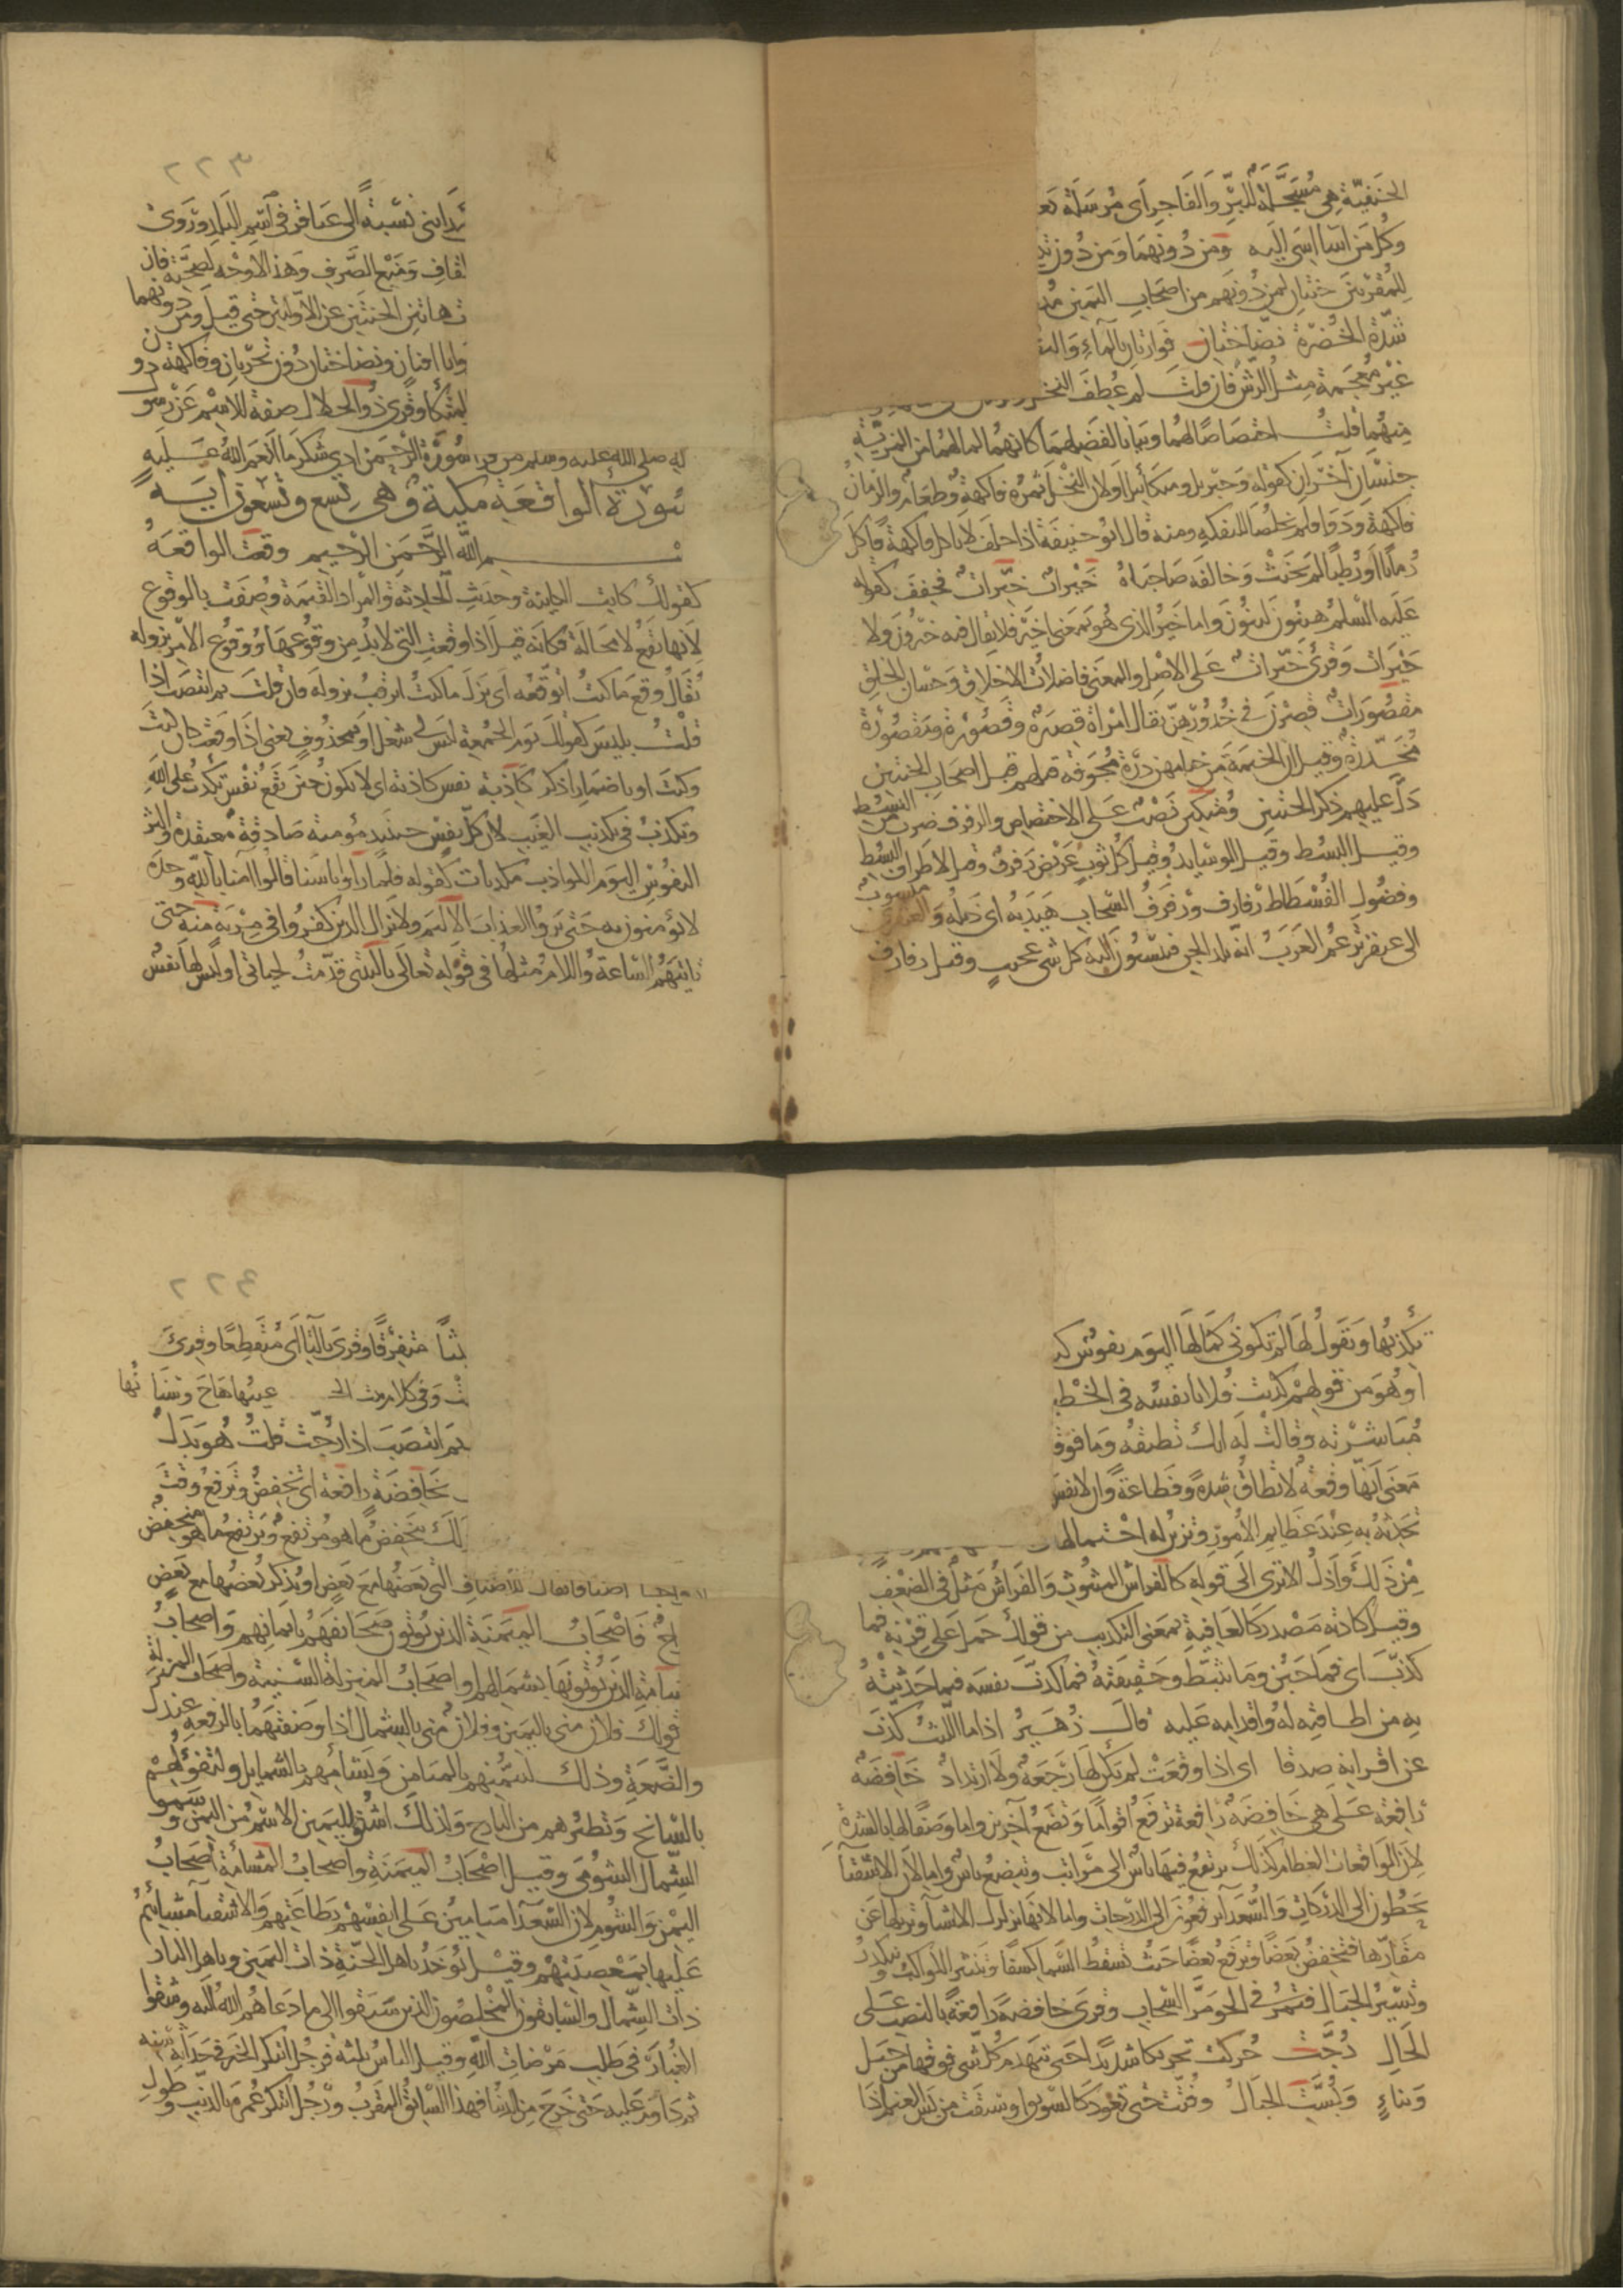 الحنفية هي مسجلة للبر والفاجر اى مرسلة
وكل من اسا اسى اليه ومن دونهما ومن دون
للمقربين جنتان لمن دونهم من اصحاب اليمين
شدة الخضرة نضاختان فوارتان بالماء
غير معجمة مثل الرش فان قلت لم عطف النخل
منهما قلت اختصاصا لهما وبيانا لفضلهما كانهما لما لهما من المزية
جنسان آخران كقوله وجبريل وميكائيل او لان النخل ثمره فاكهة وطعام والرمان
فاكهة ودوا فلم يخلصا للتفكه ومنه قال ابو حنيفة اذا حلف لا ياكل فاكهة فاكل
رمانا او رطبا لم يحنث وخالفه صاحباه خيرات خيرات فخفف كقوله
عليه السلم هينون لينون واما خير الذى هو بمعنى اخير فلا يقال فيه خيرون ولا
خيرات وقرئ خيرات على الاصل والمعنى فاضلات الاخلاق وحسان الخلق
مقصورات قصرن في خدورهن يقال امراة قصيرة وقصورة ومقصورة
مخدرة وقيل ان الخيمة من خيامهن درة مجوفة قبلهم قبل اصحاب الجنتين
دل عليهم ذكر الجنتين ومتكين نصب على الاختصاص والرفرف ضرب من البسط
وقيل البسط وقيل الوسايد وقيل كل ثوب عريض رفرف وقيل لاطراف البسط
وفضول الفسطاط رفارف ورفرف السحاب هيدبه اى ذيله والعبقرى منسوب
الى عبقر تزعم العرب انه بلد الجن فينسبون اليه كل شى عجيب وقرئ رفارف
٢٢٣
رداينى نسبة الى عباقر في اسم البلد وروى
القاف ومنع الصرف وهذا لا وجه لصحته فان
ت هاتين الجنتين عن الاوليين حتى قيل ومن دونهما
واتا افنان ونضاختان دون تجريان وفاكهة دون
المتكا وقرى ذو الجلال صفة للاسم عن رسو
لله صلى الله عليه وسلم من قرا سورة الرحمن ادى شكر ما انعم الله عليه
سورة الواقعة مكية وهي تسع وتسعون آية
بسم الله الرحمن الرحيم وقعت الواقعة
كقولك كانت الكاينة وحدثت الحادثة والمراد القيمة وصفت بالوقوع
لانها تقع لا محالة فكانه قيل اذا وقعت التى لابد من وقوعها ووقوع الامر نزوله
يقال وقع ما كنت اتوقعه اى نزل ما كنت اترقب نزوله فان قلت بم انتصب اذا
قلت بليس كقولك يوم الجمعة ليس لى شغل او بمحذوف يعنى اذا وقعت كان كيت
وكيت او باضمار اذكر كاذبة نفس كاذبة اى لا تكون حين تقع نفس تكذب على الله
وتكذب في تكذيب الغيب لان كل نفس حينيذ مؤمنة صادقة مصدقة واكثر
النفوس اليوم كواذب مكذبات كقوله فلما راوا باسنا قالوا امنا بالله وحده
لا يؤمنون به حتى يروا العذاب الاليم ولا يزال الذين كفروا في مرية منه حتى
تاتيهم الساعة واللام مثلها في قوله تعالى يا ليتنى قدمت لحياتى او ليس لها نفس
تكذبها وتقول لها لم تكونى كما لها اليوم نفوس
او هو من قولهم كذبت فلانا نفسه في الخط
مباشرته وقالت له انك تطيقه وما فوق
معنى انها وقعة لا تطاق شدة وفظاعة وان لا نفس
تحدثه به عند عظايم الامور وتزين له احتمالها
من ذلك واذل الا ترى الى قوله كالفراش المبثوث والفراش مثل في الضعف
وقيل كاذبة مصدر كالعافية بمعنى التكذيب من قولك حمل على قرنه فما
كذب اى فما جبن وما تثبط وحقيقته فما كذب نفسه فيما حدثته
به من اطاقته له واقدامه عليه قال زهير اذا ما الليث كذب
عن اقرانه صدقا اى اذا وقعت لم تكن لها رجعة ولا ارتداد خافضة
رافعة على هى خافضة رافعة ترفع اقواما وتضع آخرين واما وصفا لها بالشدة
لان الواقعات العظام كذلك يرتفع فيها ناس الى مراتب ويتضع ناس واما لان الاشقيا
يحطون الى الدركات والسعدا يرفعون الى الدرجات واما لانها تزلزل الاشيا وتزيلها عن
مقارها فتخفض بعضا وترفع بعضا حيث تسقط السما كسفا وتنثر الكواكب وتنكدر
وتسير الجبال فتمر في الجو مر السحاب وقرى خافضة رافعة بالنصب على
الحال رجت حركت تحريكا شديدا حتى ينهدم كل شى فوقها من جبل
وبناء وبست الجبال وفتت حتى تعود كالسويق او سيقت من بس الغنم اذا
٢٢٤
بثا متفرقا وقرى بالتا اى منقطعا وقرئ
ت وفي كلام بنت الخـ عينها هاج وتنا
بم انتصب اذا رجت قلت هو بدل
بخافضة رافعة اى تخفض وترفع وقت
لك ينخفض ما هو مرتفع ويرتفع ما هو منخفض
ازواجا اصنافا يقال للاصناف التى بعضها مع بعض او يذكر بعضها مع بعض
فاصحاب الميمنة الذين يؤتون صحايفهم بايمانهم واصحاب
المشامة الذين يؤتونها بشمايلهم او اصحاب المنزلة السنية واصحاب المنزلة
قولك فلان منى باليمين وفلان منى بالشمال اذا وصفتهما بالرفعة عندك
والضعة وذلك لتيمنهم بالميامن وتشامهم بالشمايل ولتفؤلهم
بالسانح وتطيرهم من البارح ولذلك اشتقوا لليمين الاسم من اليمن وسموا
الشمال الشومى وقيل اصحاب الميمنة واصحاب المشامة اصحاب
اليمن والشوم لان السعدا ميامين على انفسهم بطاعتهم والاشقيا مشائيم
عليها بمعصيتهم وقيل يؤخذ باهل الجنة ذات اليمين وباهل النار
ذات الشمال والسابقون المخلصون الذين سبقوا الى ما دعاهم الله اليه وشقوا
الغبار في طلب مرضات الله وقيل الناس ثلثة فرجل ابتكر الخير في حداثة سنه
ثم داوم عليه حتى خرج من الدنيا فهذا السابق المقرب ورجل ابتكر عمره بالذنب وطول